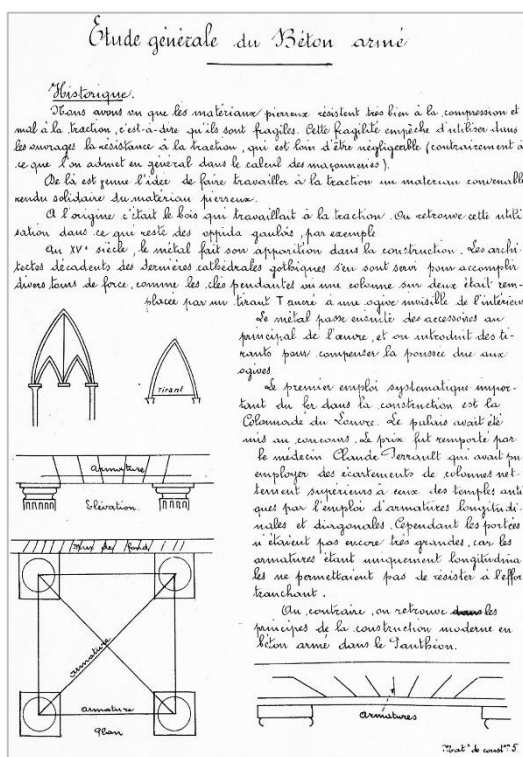 Etude générale du Béton armé
Historique.
Nous avons vu que les matériaux pierreux résistent très bien à la compression et
mal à la traction, c'est-à-dire qu'ils sont fragiles. Cette fragilité empêche d'utiliser dans
les ouvrages la résistance à la traction, qui est loin d'être négligeable (contrairement à
ce que l'on admet en général dans le calcul des maçonneries).
De là est venue l'idée de faire travailler à la traction un matériau convenable
rendu solidaire du matériau pierreux.
A l'origine c'était le bois qui travaillait à la traction. On retrouve cette utili
sation dans ce qui reste des oppida gaulois, par exemple
Au XVe siècle, le métal fait son apparition dans la construction. Les archi-
tectes décadents des dernières cathédrales gothiques s'en sont servi pour accomplir
divers tours de force, comme les clés pendantes ou une colonne sur deux était rem-
placée par un tirant T ancré à une ogive invisible de l'intérieur
Le métal passe ensuite des accessoires au
principal de l'œuvre, et on introduit des ti-
rants pour compenser la poussée due aux
ogives
Tirant
Le premier emploi systématique impor-
tant du fer dans la construction est la
Colonnade du Louvre. Le palais avait été
mis au concours. Le prix fut remporté par
le médecin Claude Perrault qui avait pu
employer des écartements de colonnes net-
tement supérieurs à ceux des temples anti
ques par l'emploi d'armatures longitudi-
nales et diagonales. Cependant les portées
n'étaient pas encore très grandes, car les
armatures étant uniquement longitudina
les ne permettaient pas de résister à l'effort
tranchant.
Au contraire, on retrouve les
principes de la construction moderne en
béton armé dans le Panthéon.
armature
Elévation.
Mur de fond
armature
armature
Plan
armatures
Mat. de const. 5